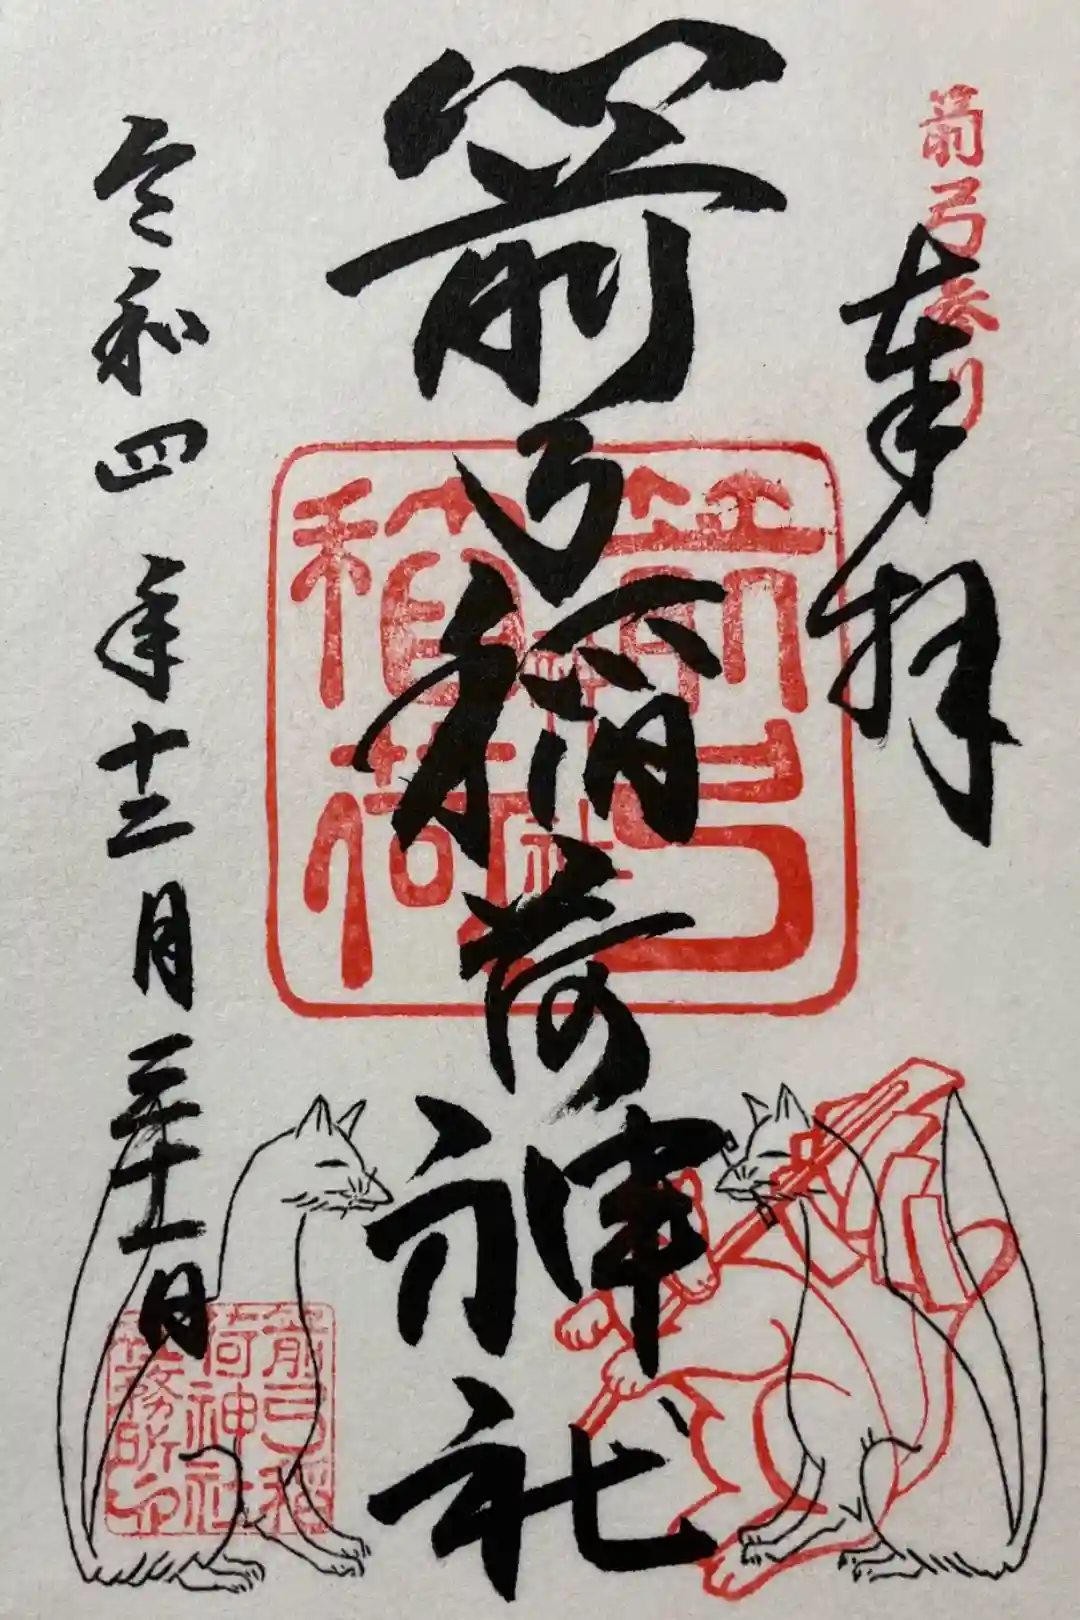 箭弓参り
奉拝
箭弓稲荷神社
箭弓
神社
稲荷
令和四年十二月三十一日
箭弓稲
荷神社